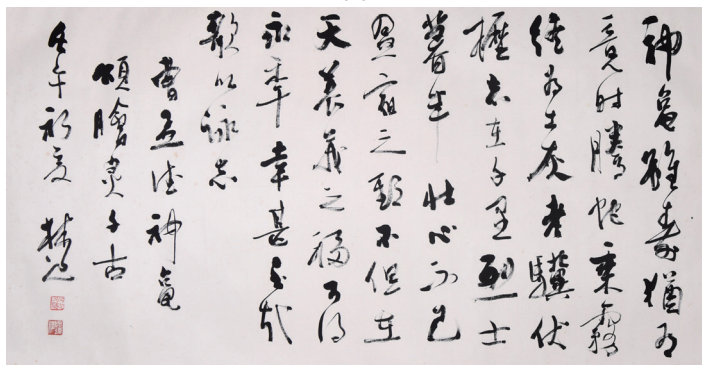 神龜雖壽猶有
竟時騰蛇乘霧
終為土灰老驥伏
櫪志在千里烈士
暮年 壯心不已
盈之不但在
天養之福可得
永年幸甚至哉
歌以詠志
曹孟德神龜
頌膾炙千古
壬午初夏 林